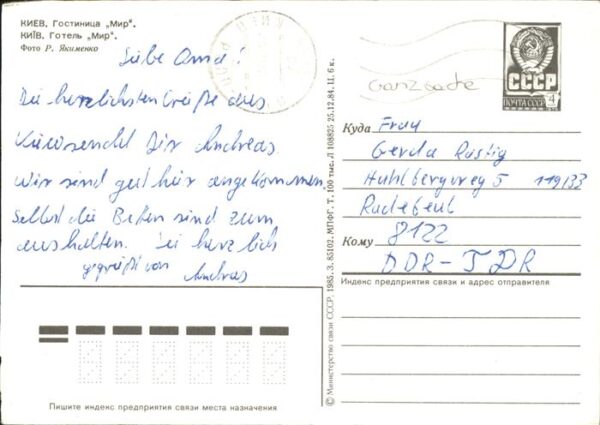 КИЕВ. Гостиница „Мир".
КИЇВ. Готель „Мир".
Фото Р. Якименко
Liebe Oma!
Die herzlichsten Grüße aus
Kiew sendet Dir Andreas
Wir sind gut hier angekommen,
selbst die Betten sind zum
aushalten. Sei herzlich
gegrüßt von Andreas
© Министерство связи СССР. 1985. З. 85102. МПФГ. Т. 100 тыс. Л 108825 25.12.84. Ц. 6 к.
Ganzsache
СССР
ПОЧТА СССР
4
Куда Frau
Gerda Rostig
Huhlbergweg 5 119/33
Radebeul
Кому 8122
DDR - ГДР
Индекс предприятия связи и адрес отправителя
Пишите индекс предприятия связи места назначения